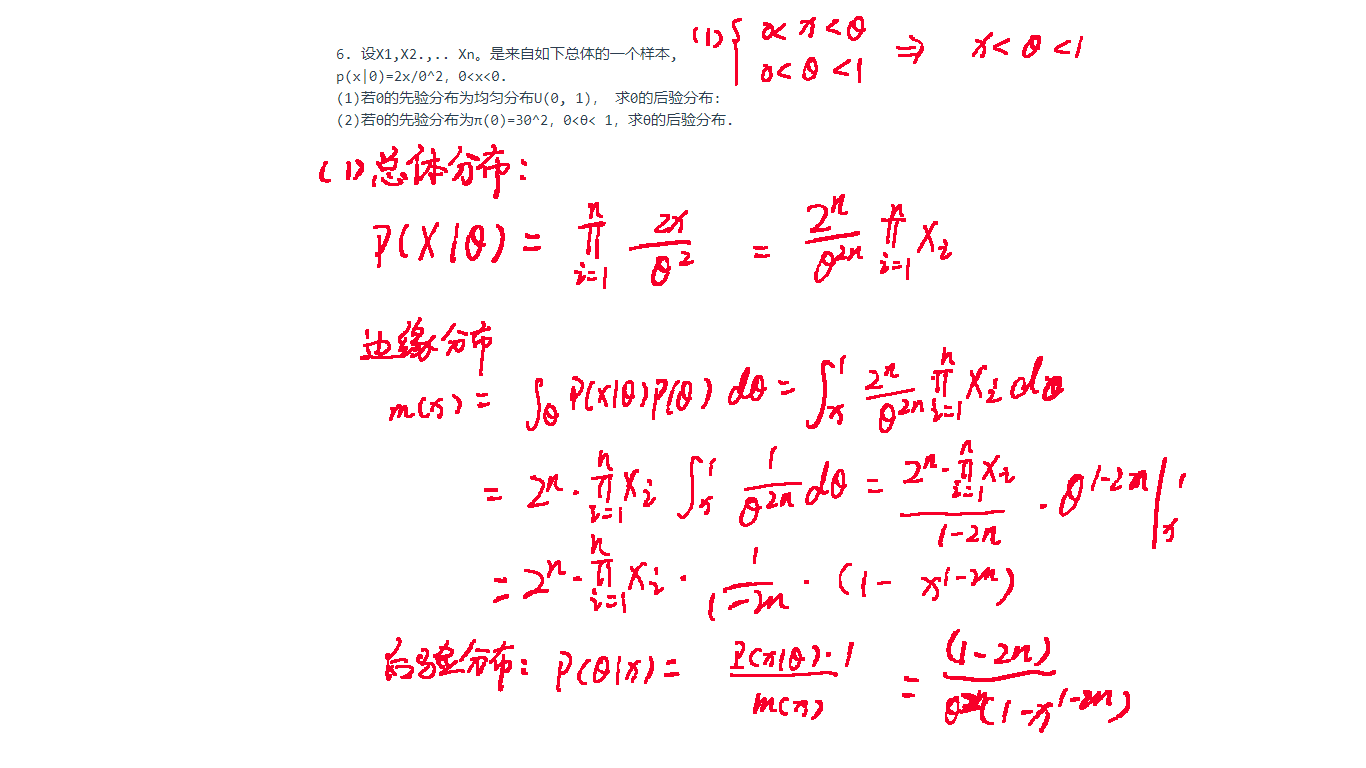 6. 设X1,X2.,.. Xn。是来自如下总体的一个样本,
p(x|0)=2x/0^2, 0<x<0.
(1)若0的先验分布为均匀分布U(0, 1), 求0的后验分布:
(2)若θ的先验分布为π(0)=30^2, 0<θ< 1, 求θ的后验分布.
(1) { 0< x <θ
0< θ <1 ⇒ x< θ <1
(1)总体分布:
P(X|θ) = ∏_{i=1}^{n} 2x/θ^2 = 2^n/θ^{2n} ∏_{i=1}^{n} X_i
边缘分布
m(x) = ∫_θ P(x|θ)P(θ) dθ = ∫_x^1 2^n/θ^{2n} ∏_{i=1}^{n} X_i dθ
= 2^n · ∏_{i=1}^{n} X_i ∫_x^1 1/θ^{2n} dθ = (2^n · ∏_{i=1}^{n} X_i)/(1-2n) · θ^{1-2n} |_x^1
= 2^n · ∏_{i=1}^{n} X_i · 1/(1-2n) · (1 - x^{1-2n})
后验分布: P(θ|x) = P(x|θ)·1/m(x) = (1-2n)/(θ^{2n}(1-x^{1-2n}))